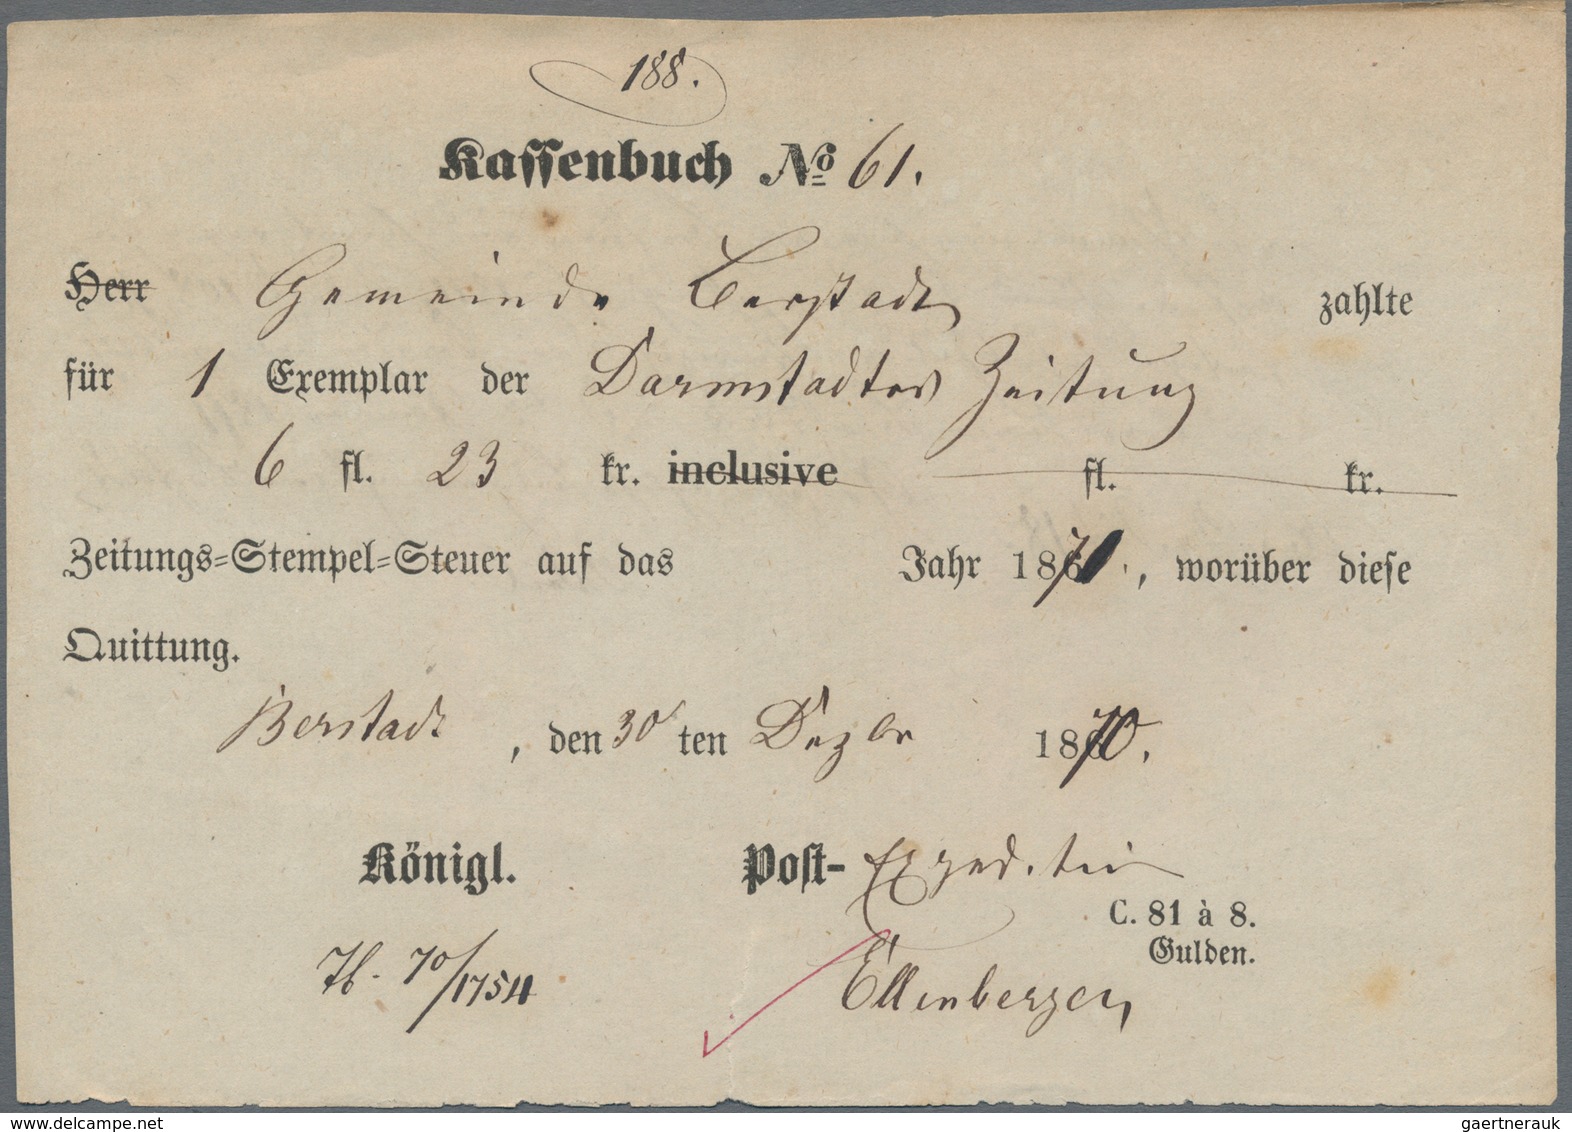 188.
Kassenbuch No 61.
Herr Gemeinde Berstadt zahlte
für 1 Exemplar der Darmstadter Zeitung
6 fl. 23 kr. inclusive fl. kr.
Zeitungs=Stempel=Steuer auf das Jahr 1870, worüber diese
Quittung.
Berstadt, den 30 ten Dezbr 1870.
Königl. Post- Expedition
C. 81 à 8.
Gulden.
70/1754
Ellenberger
delcampe.net
gaertnerauk